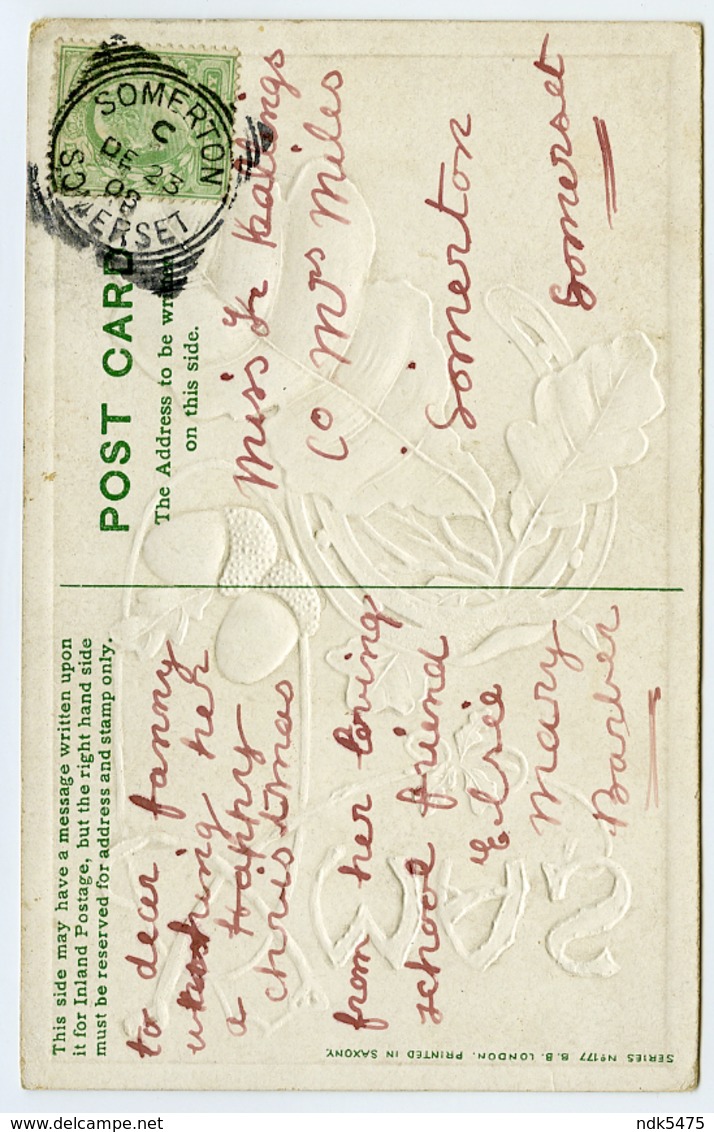 This side may have a message written upon
it for Inland Postage, but the right hand side
must be reserved for address and stamp only.
POST CARD
The Address to be written
on this side.
SOMERTON
C
DE 23
SOMERSET
to dear fanny
wishing her
a Happy
christmas
from her loving
school friend
Elsee
Mary
Barber
Miss F
Co Mrs Miles
Somerton
Somerset
SERIES No 177 B.B. LONDON. PRINTED IN SAXONY.
delcampe.net
ndk5475